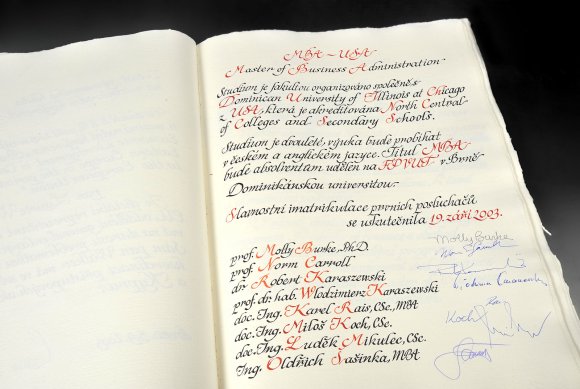 MBA - USA
Master of Business Administration
Studium je fakultou organizováno společně s
Dominican University of Illinois at Chicago
z USA, která je akreditována North Central
of Colleges and Secondary Schools.
Studium je dvouleté, výuka bude probíhat
v českém a anglickém jazyce. Titul MBA
bude absolventům udělen na FPVUT v Brně
Dominikánskou universitou.
Slavnostní imatrikulace prvních posluchačů
se uskutečnila 19. září 2003.
prof. Molly Burke, PhD.
prof. Norm Carroll
dr. Robert Karaszewski
prof. dr. hab. Wlodzimierz Karaszewski
doc. Ing. Karel Rais, CSc., MBA
doc. Ing. Miloš Koch, CSc.
doc. Ing. Luděk Mikulec, CSc.
Ing. Oldřich Šašinka, MBA
Molly Burke
Koch